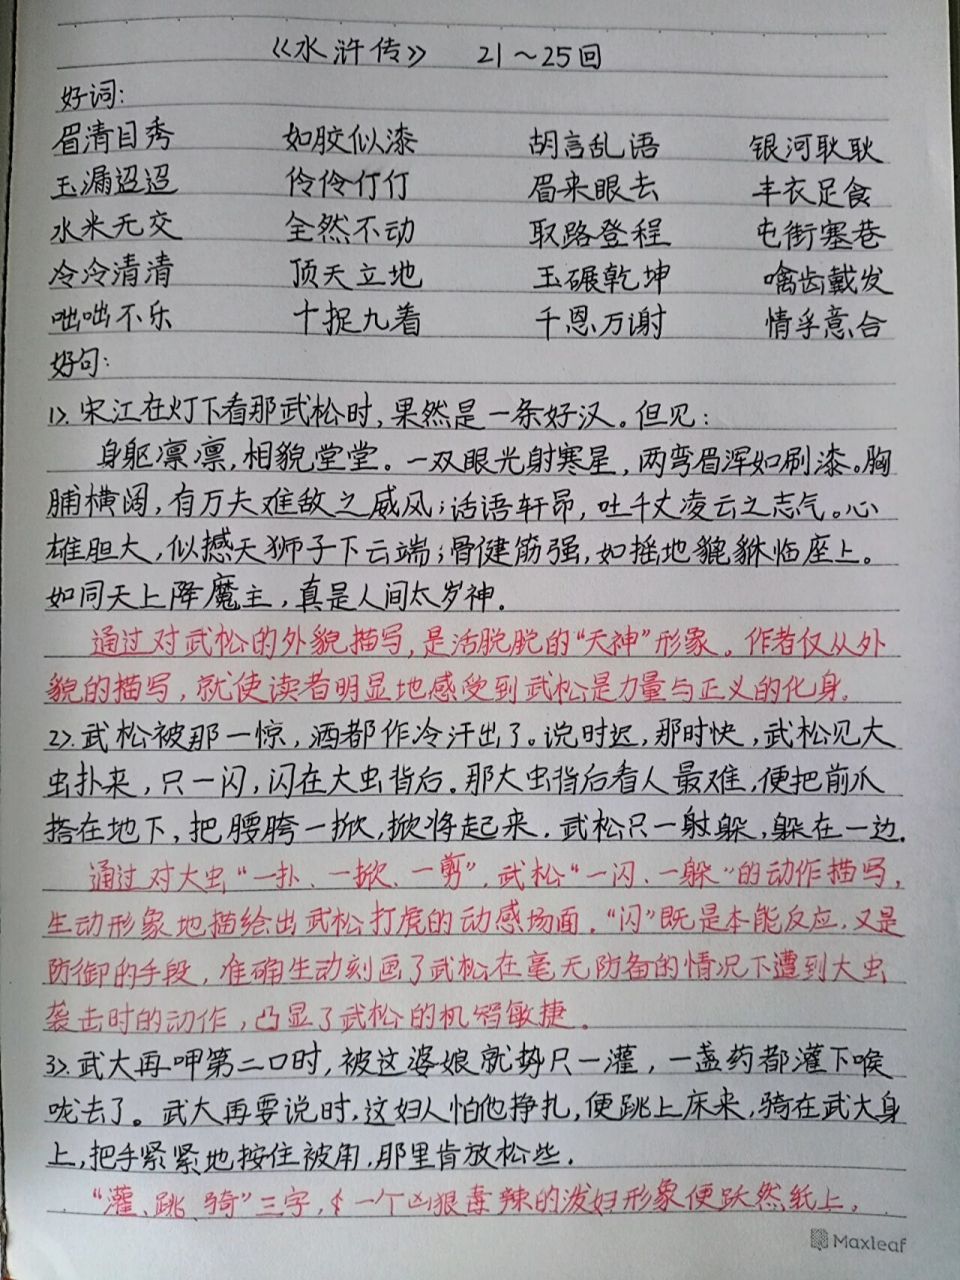 《水浒传》 21～25回
好词:
眉清目秀 如胶似漆 胡言乱语 银河耿耿
玉漏迢迢 伶伶仃仃 眉来眼去 丰衣足食
水米无交 全然不动 取路登程 屯街塞巷
冷冷清清 顶天立地 玉碾乾坤 噙齿戴发
咄咄不乐 十捉九着 千恩万谢 情孚意合
好句:
1>. 宋江在灯下看那武松时, 果然是一条好汉。但见:
身躯凛凛, 相貌堂堂。一双眼光射寒星, 两弯眉浑如刷漆。胸
脯横阔, 有万夫难敌之威风; 话语轩昂, 吐千丈凌云之志气。心
雄胆大, 似撼天狮子下云端; 骨健筋强, 如摇地貔貅临座上。
如同天上降魔主, 真是人间太岁神.
通过对武松的外貌描写, 是活脱脱的“天神”形象。作者仅从外
貌的描写, 就使读者明显地感受到武松是力量与正义的化身.
2>. 武松被那一惊, 酒都作冷汗出了。说时迟, 那时快, 武松见大
虫扑来, 只一闪, 闪在大虫背后。那大虫背后看人最难, 便把前爪
搭在地下, 把腰胯一掀, 掀将起来. 武松只一射躲, 躲在一边.
通过对大虫“一扑、一掀、一剪”, 武松“一闪、一躲”的动作描写,
生动形象地描绘出武松打虎的动感场面. “闪”既是本能反应, 又是
防御的手段, 准确生动刻画了武松在毫无防备的情况下遭到大虫
袭击时的动作, 凸显了武松的机智敏捷.
3>. 武大再呷第二口时, 被这婆娘就势只一灌, 一盏药都灌下喉
咙去了。武大再要说时, 这妇人怕他挣扎, 便跳上床来, 骑在武大身
上, 把手紧紧地按住被角, 那里肯放松些.
“灌、跳、骑”三字, 一个凶狠毒辣的泼妇形象便跃然纸上.
Maxleaf